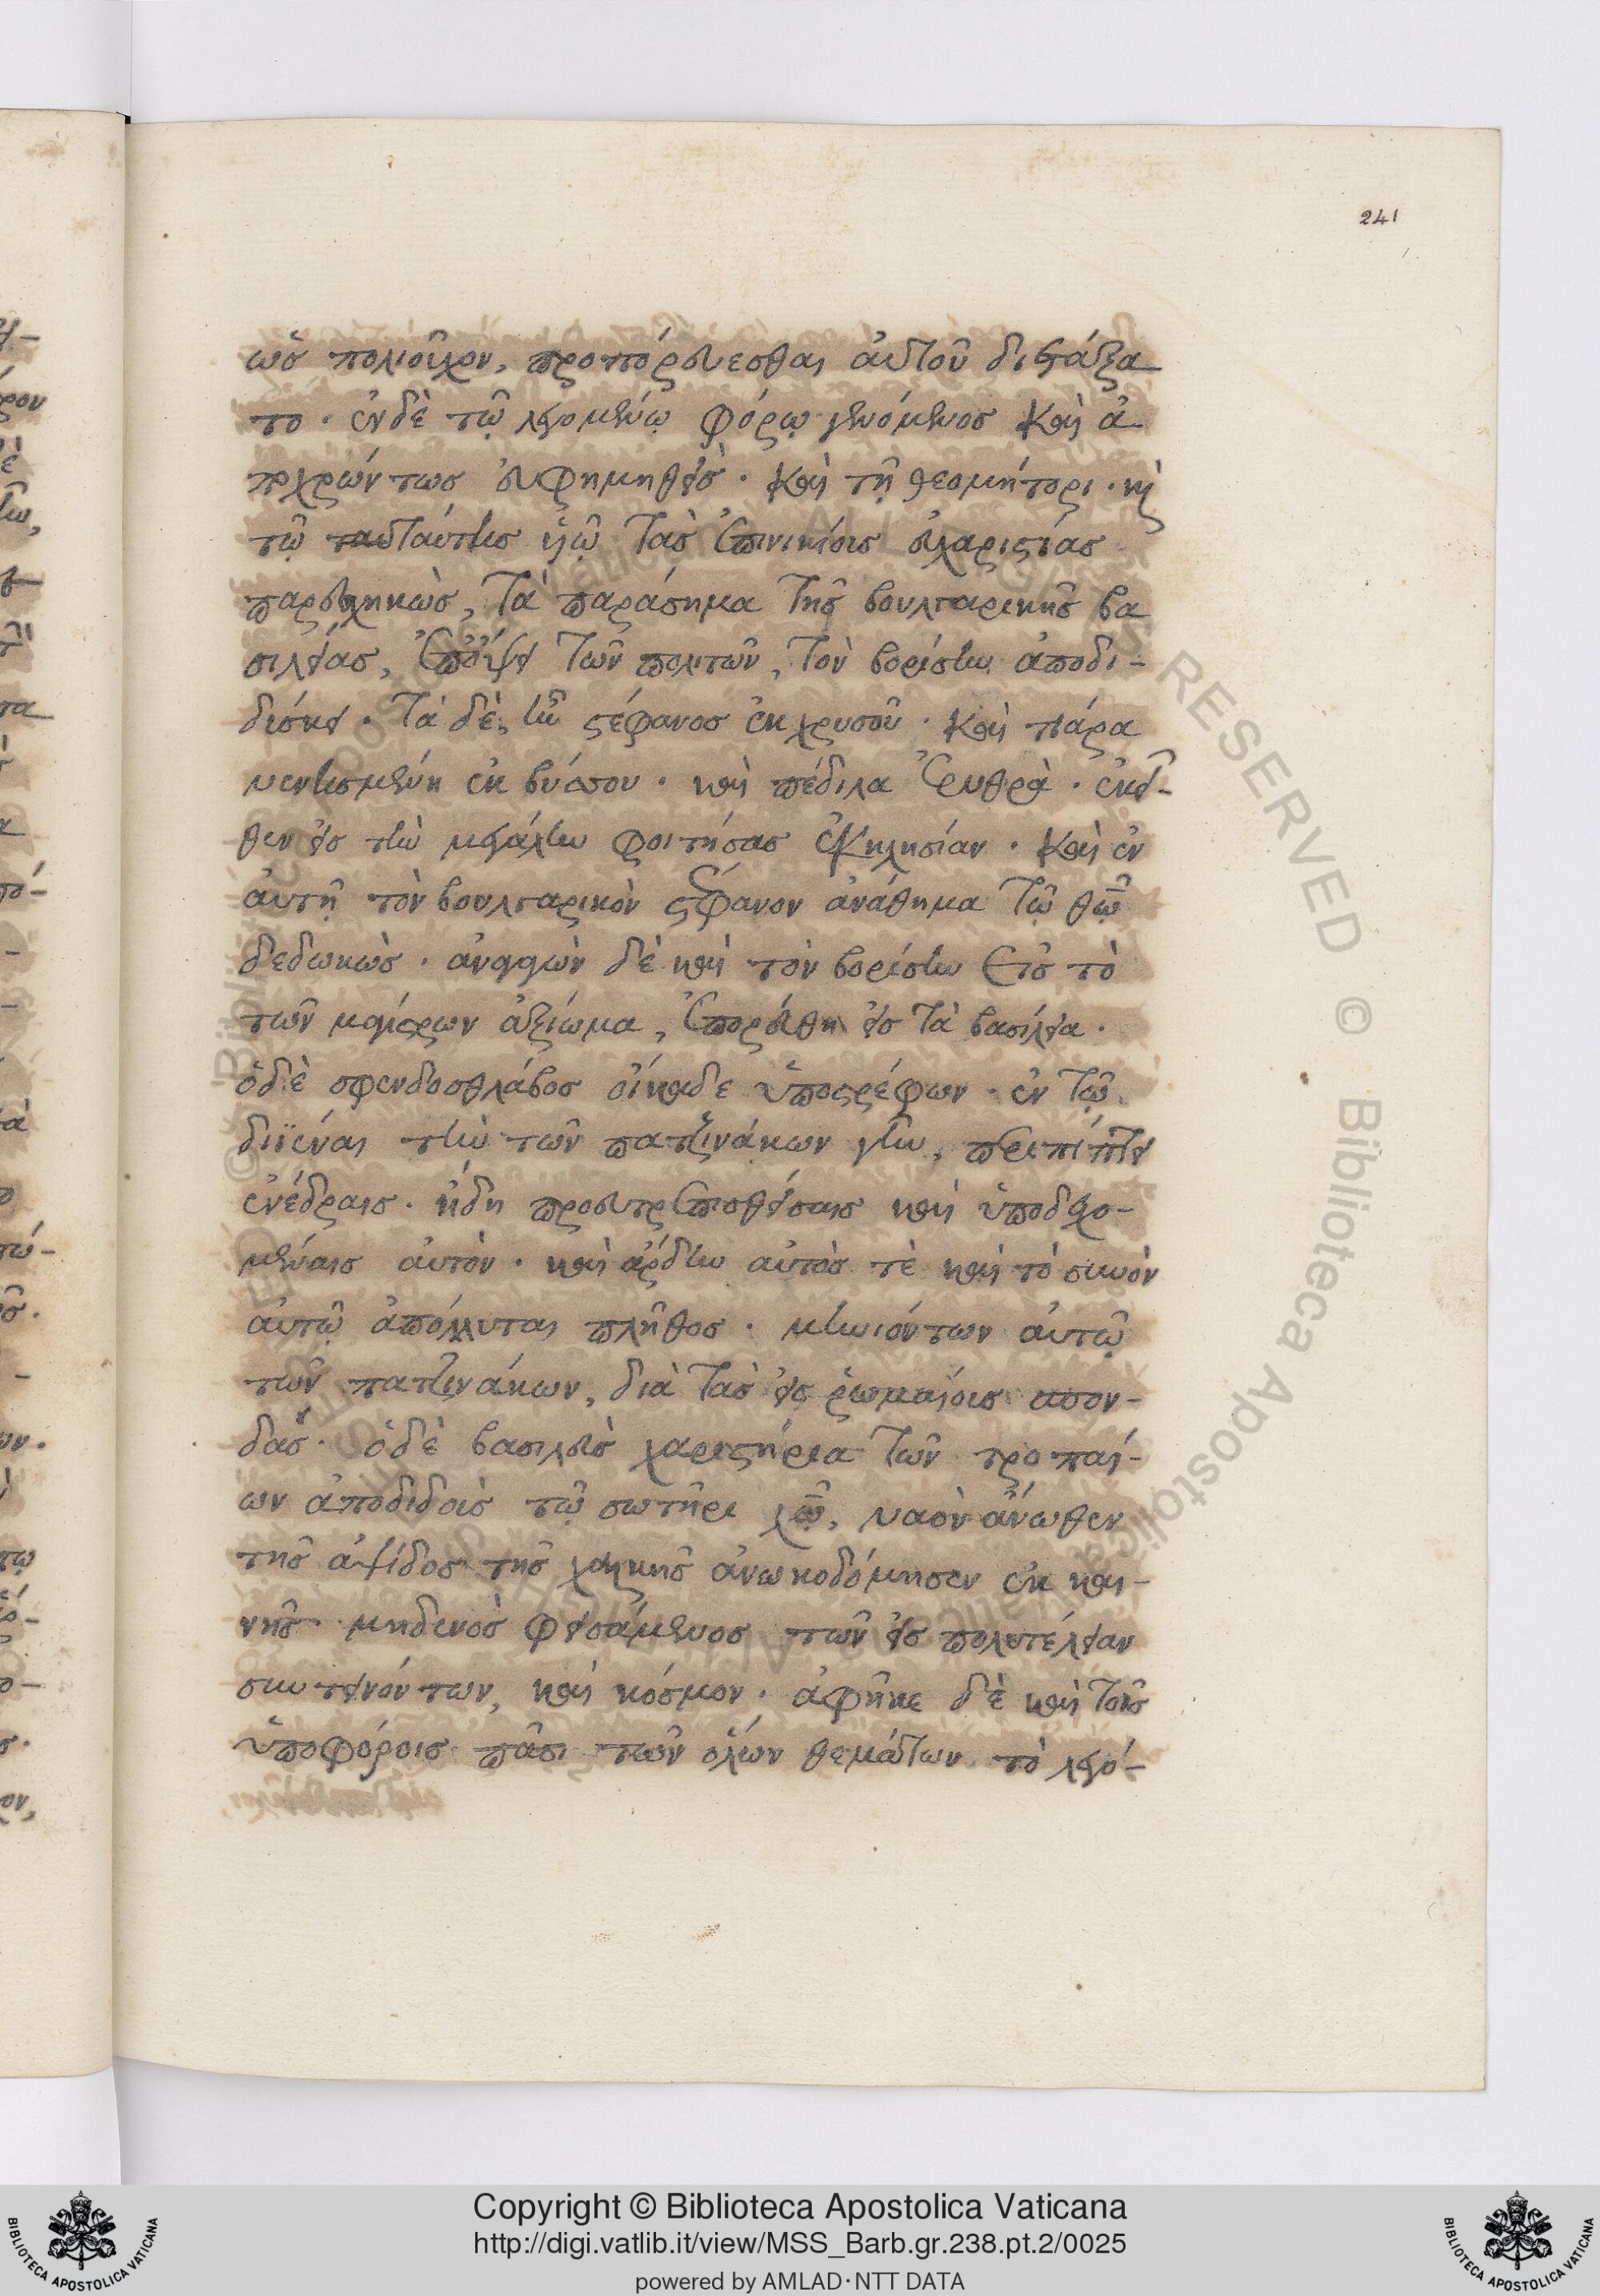 241
ὡς πολιοῦχον, προπορεύεσθαι αὐτοῦ διετάξα
το. ἐν δὲ τῷ λεγομένῳ φόρῳ γενόμενος καὶ ἀ-
ποχρώντως εὐφημηθεὶς. καὶ τῇ θεομήτορι. καὶ
τῷ ταύτης υἱῷ τὰς ἐπινικίοις εὐχαριστίας
παρεσχηκὼς, τὰ παράσημα τῆς βουλγαρικῆς βα
σιλείας, ἐπόψει τῶν πολιτῶν, τὸν βορίσην ἀποδι-
δύσκει. τὰ δὲ, ἦν στέφανος ἐκ χρυσοῦ. καὶ τιάρα
νενησμένη ἐκ βύσσου. καὶ πέδιλα ἐρυθρὰ. ἐκεῖ-
θεν εἰς τὴν μεγάλην φοιτήσας ἐκκλησίαν. καὶ ἐν
αὐτῇ τὸν βουλγαρικὸν στέφανον ἀνάθημα τῷ θῷ
δεδωκὼς. ἀναγαγὼν δὲ καὶ τὸν βορίσην εἰς τὸ
τῶν μαγίστρων ἀξίωμα, ἐπορεύθη εἰς τὰ βασίλεια.
ὁ δὲ σφενδοσθλάβος οἴκαδε ὑποστρέφων. ἐν τῷ
διϊέναι τὴν τῶν πατζινάκων γῆν, περιπίπτει
ἐνέδραις. ἤδη προευτρεπισθείσαις καὶ ὑποδεχο-
μέναις αὐτὸν. καὶ ἄρδην αὐτὸς τὲ καὶ τὸ συνὸν
αὐτῷ ἀπόλλυται πλῆθος. μηνιόντων αὐτῷ
τῶν πατζινάκων, διὰ τὰς εἰς ῥωμαίοις σπον-
δάς. ὁ δὲ βασιλεὺς χαριστήρια τῶν τροπαί-
ων ἀποδιδοὶς τῷ σωτῆρι χῷ, ναὸν ἄνωθεν
τῆς ἁψίδος τῆς χαλκῆς ἀνωκοδόμησεν ἐκ και-
νῆς. μηδενὸς φεισάμενος τῶν εἰς πολυτέλειαν
συντεινόντων, καὶ κόσμον. ἀφῆκε δὲ καὶ τοῖς
ὑποφόροις πᾶσι τῶν ὅλων θεμάτων τὸ λεγό-
Copyright © Biblioteca Apostolica Vaticana
http://digi.vatlib.it/view/MSS_Barb.gr.238.pt.2/0025
powered by AMLAD·NTT DATA